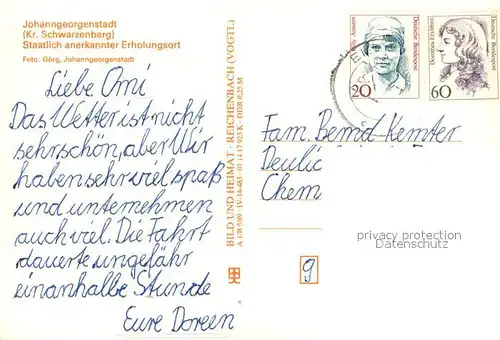 Johanngeorgenstadt
(Kr. Schwarzenberg)
Staatlich anerkannter Erholungsort
Foto: Görg, Johanngeorgenstadt
Liebe Omi
Das Wetter ist nicht
sehr schön, aber Wir
haben sehr viel spaß
und unternehmen
auch viel. Die Fahrt
dauerte ungefähr
einanhalbe Stunde
Eure Doreen
BILD UND HEIMAT · REICHENBACH (VOGTL)
A 1/B 589 · IV-14-483 · 01 14 17 923 K · DDR 0,25 M
Deutsche Bundespost
20
Dorothea Erxleben
Deutsche Bundespost
60
Fam. Bernd Kemter
Deulic
Chem
privacy protection
Datenschutz
9